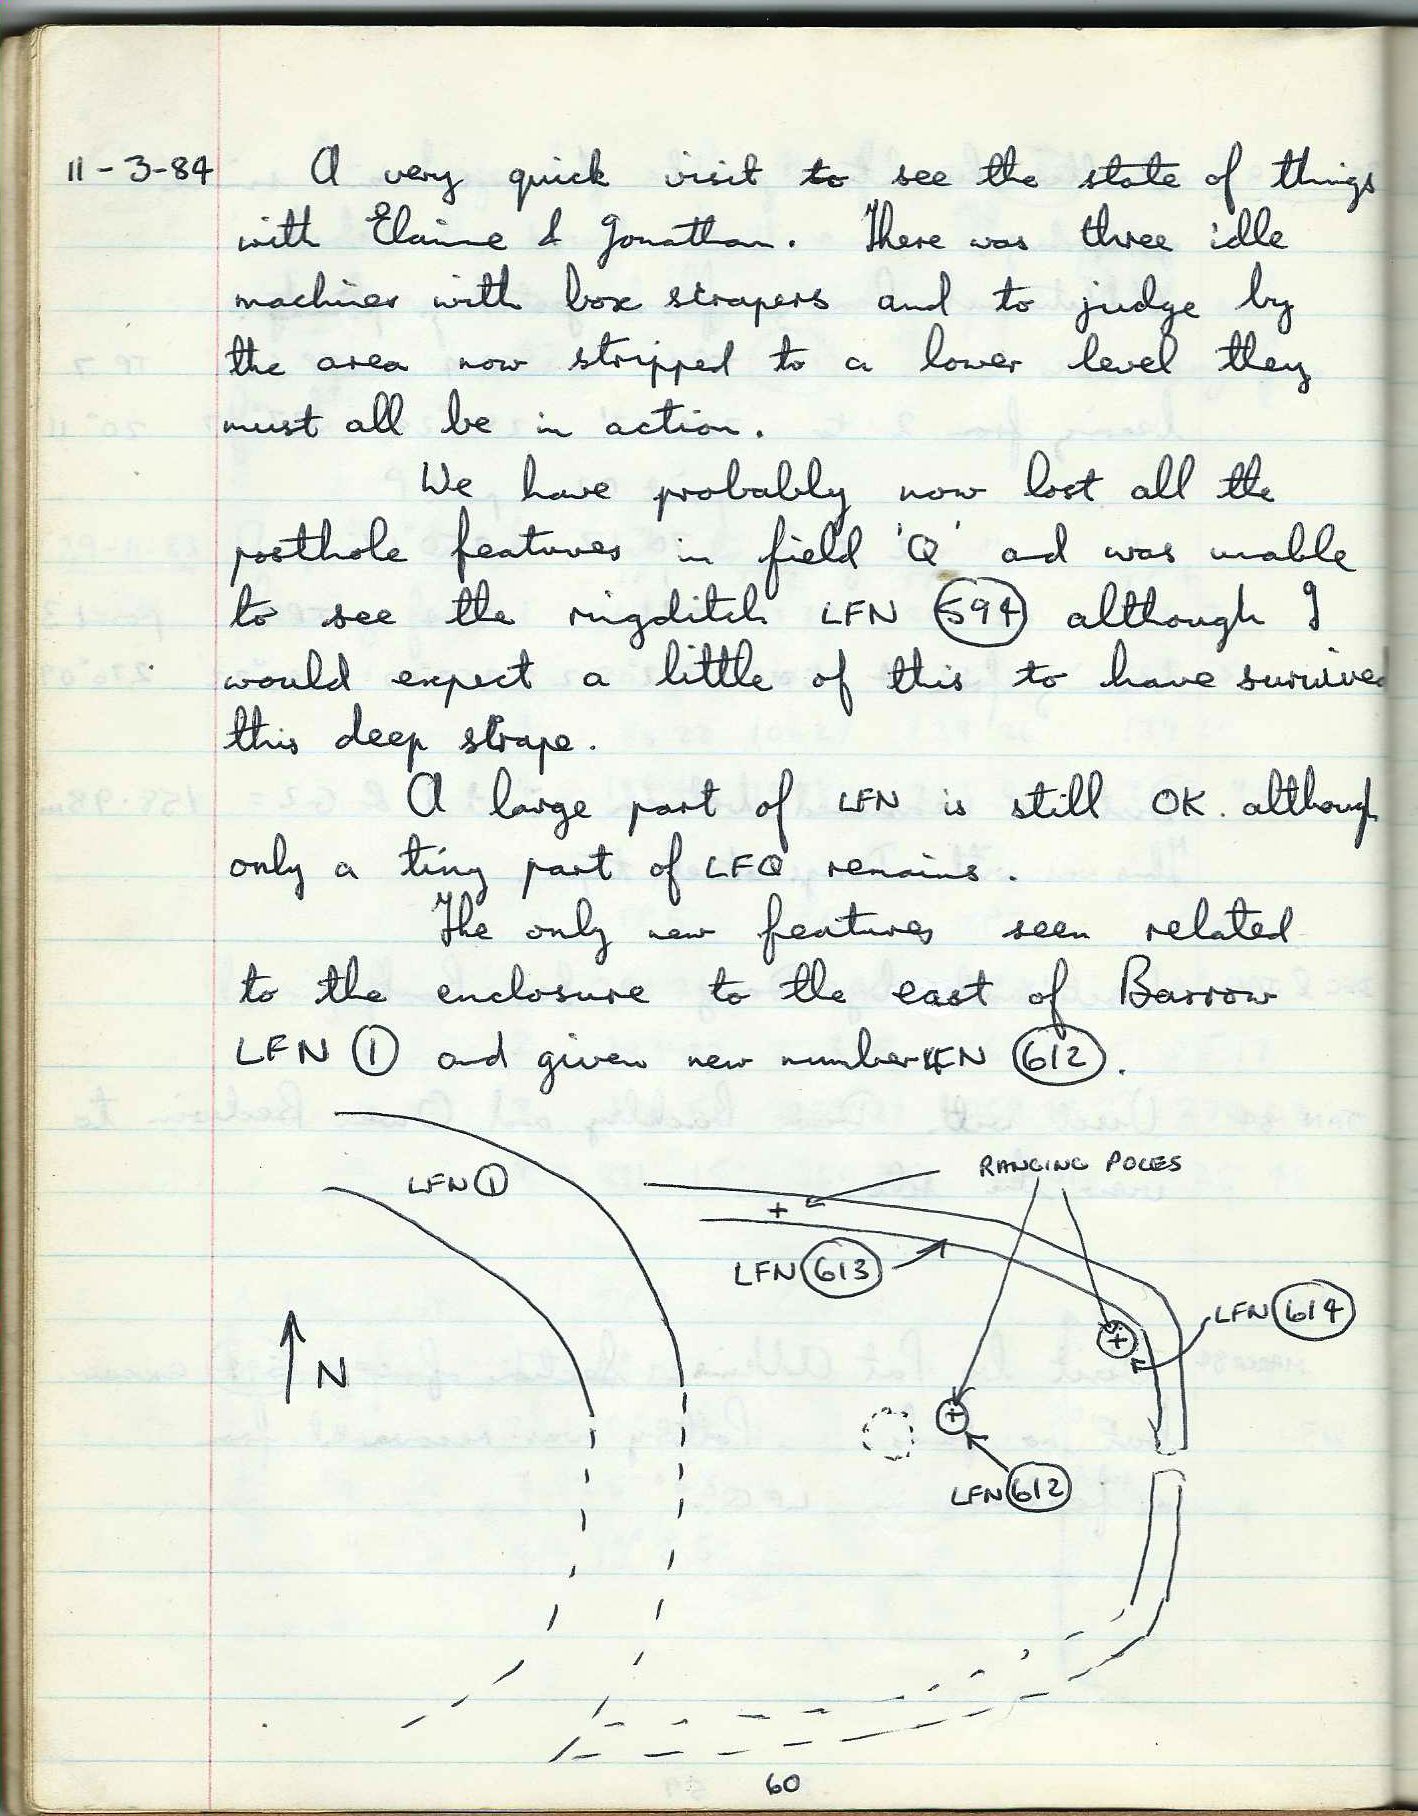 11-3-84 A very quick visit to see the state of things
with Elaine & Jonathan. There was three idle
machines with box scrapers and to judge by
the area now stripped to a lower level they
must all be in action.
We have probably now lost all the
posthole features in field 'Q' and was unable
to see the ringditch LFN 594 although I
would expect a little of this to have survived
this deep strape.
A large part of LFN is still OK. although
only a tiny part of LFQ remains.
The only new features seen related
to the enclosure to the east of Barrow
LFN 1 and given new number LFN 612.
RANGING POLES
LFN 1
LFN 613
LFN 614
N
LFN 612
60